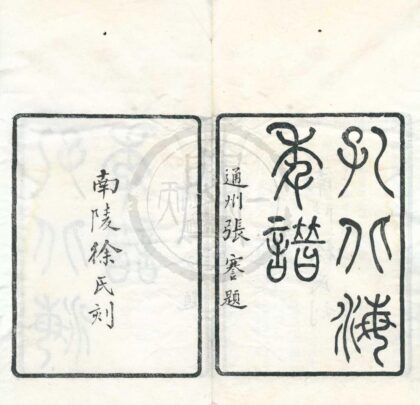 孔北海
年譜
通州張謇題
南陵徐氏刻